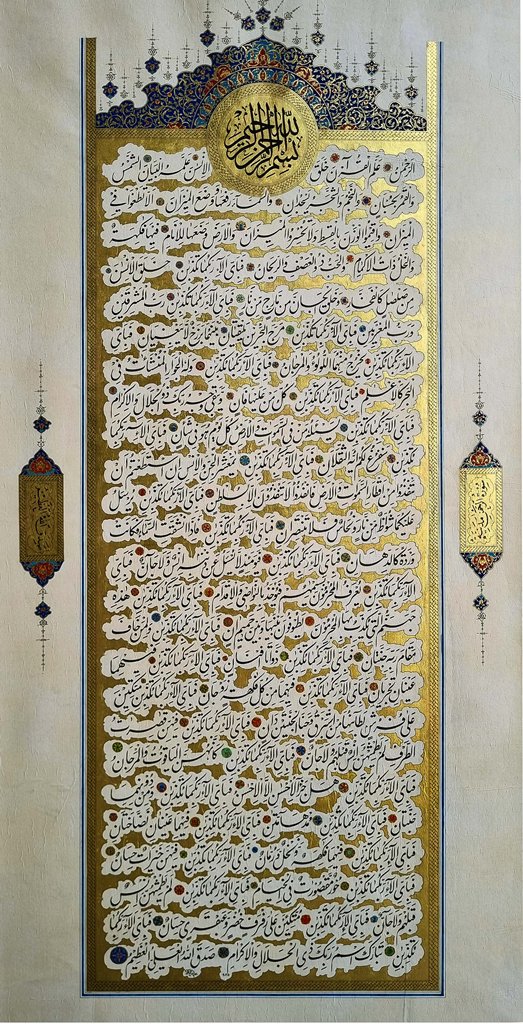 بسم الله الرحمن الرحيم
الرحمن علم القرآن خلق الانسن علمه البيان الشمس
والقمر بحسبان والنجم والشجر يسجدان والسماء رفعها ووضع الميزان الا تطغوا في
الميزان واقيموا الوزن بالقسط ولا تخسروا الميزان والارض وضعها للانام فيها فاكهة
والنخل ذات الاكمام والحب ذو العصف والريحان فبای الاء ربكما تكذبن خلق الانسن
من صلصال كالفخار وخلق الجان من مارج من نار فبای الاء ربكما تكذبن رب المشرقين
ورب المغربين فبای الاء ربكما تكذبن مرج البحرين يلتقيان بينهما برزخ لا يبغيان فبای
الاء ربكما تكذبن يخرج منهما اللؤلؤ والمرجان فبای الاء ربكما تكذبن وله الجوار المنشئات في
البحر كالاعلام فبای الاء ربكما تكذبن كل من عليها فان ويبقى وجه ربك ذو الجلال والاكرام
فبای الاء ربكما تكذبن يسئله من في السموت والارض كل يوم هو في شان فبای الاء ربكما
تكذبن سنفرغ لكم ايه الثقلان فبای الاء ربكما تكذبن يا معشر الجن والانس ان استطعتم ان
تنفذوا من اقطار السموات والارض فانفذوا لا تنفذون الا بسلطن فبای الاء ربكما تكذبن يرسل
عليكما شواظ من نار ونحاس فلا تنتصران فبای الاء ربكما تكذبن فاذا انشقت السماء فكانت
وردة كالدهان فبای الاء ربكما تكذبن فيومئذ لا يسئل عن ذنبه انس ولا جان فبای
الاء ربكما تكذبن يعرف المجرمون بسيمهم فيؤخذ بالنواصي والاقدام فبای الاء ربكما تكذبن هذه
جهنم التي يكذب بها المجرمون يطوفون بينها وبين حميم ان فبای الاء ربكما تكذبن ولمن خاف
مقام ربه جنتان فبای الاء ربكما تكذبن ذواتا افنان فبای الاء ربكما تكذبن فيهما
عينان تجريان فبای الاء ربكما تكذبن فيهما من كل فاكهة زوجان فبای الاء ربكما تكذبن متكئين
على فرش بطائنها من استبرق وجنا الجنتين دان فبای الاء ربكما تكذبن فيهن قاصرات
الطرف لم يطمثهن انس قبلهم ولا جان فبای الاء ربكما تكذبن كانهن الياقوت والمرجان
فبای الاء ربكما تكذبن هل جزاء الاحسن الا الاحسن فبای الاء ربكما تكذبن ومن دونهما
جنتان فبای الاء ربكما تكذبن مدهامتان فبای الاء ربكما تكذبن فيهما عينان نضاختان
فبای الاء ربكما تكذبن فيهما فاكهة ونخل ورمان فبای الاء ربكما تكذبن فيهن خيرات حسان
فبای الاء ربكما تكذبن حور مقصورات في الخيام فبای الاء ربكما تكذبن لم يطمثهن انس
قبلهم ولا جان فبای الاء ربكما تكذبن متكئين على رفرف خضر وعبقري حسان فبای الاء ربكما
تكذبن تبارك اسم ربك ذي الجلال والاكرام صدق الله العلي العظيم